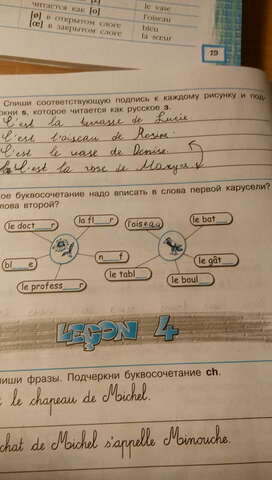 читается как [o]
le vase
l'oiseau
[ø] в открытом слоге
bleu
[œ] в закрытом слоге
la sœur
19
Спиши соответствующую подпись к каждому рисунку и под-
кни s, которое читается как русское з.
C'est la de Lucie
C'est l'oiseau de Rosine.
C'est le vase de Denise.
C'est la rose de
ое буквосочетание надо вписать в слова первой карусели?
лова второй?
le doct__r
la fl__r
l'oiseau
le bat__
bl__e
n__f
le gât__
le tabl__
le profess__r
le boul__
LEÇON 4
пиши фразы. Подчеркни буквосочетание ch.
t le chapeau de Michel.
chat de Michel s'appelle Minouche.